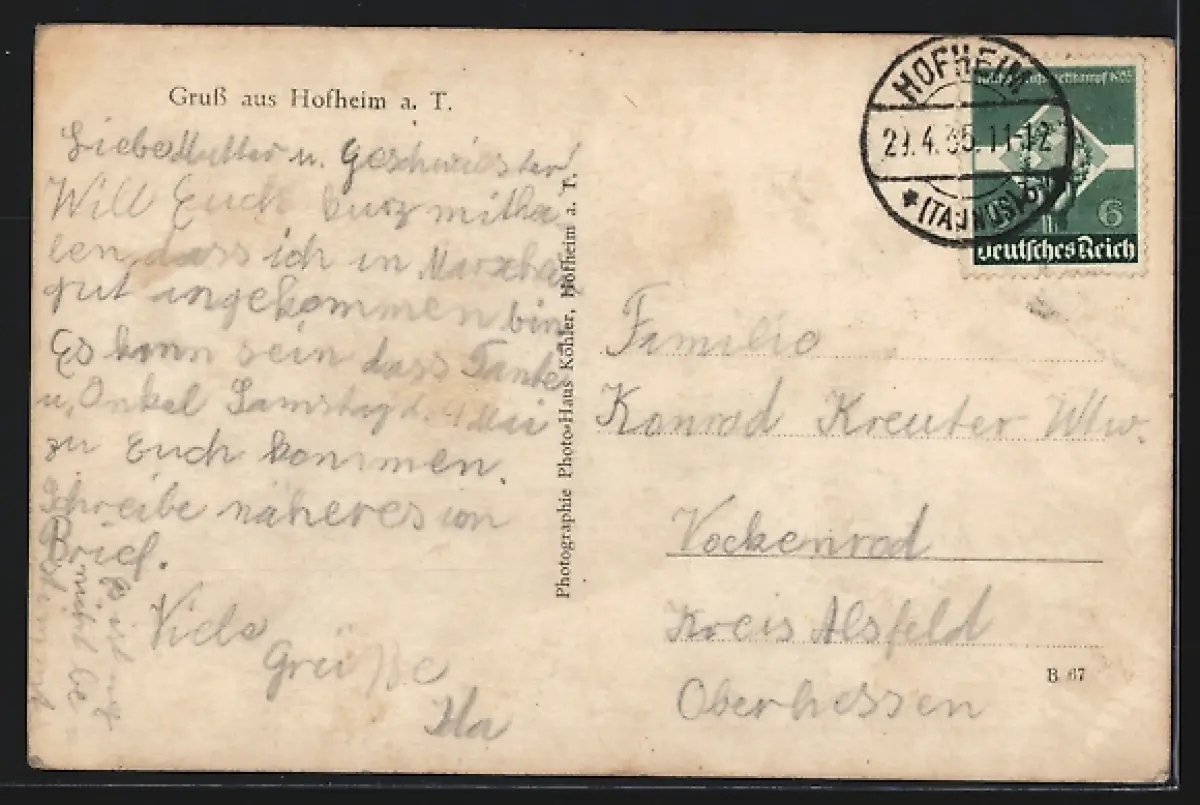 Gruß aus Hofheim a. T.
Liebe Mutter u. Geschwister!
Will Euch kurz mittei
len, dass ich in
gut angekommen bin,
Es kann sein dass Tante
u. Onkel Samstag d. 4 Mai
zu Euch kommen.
Schreibe näheres im
Brief.
Viele
Grüße
Photographie Photo-Haus Köhler, Hofheim a. T.
HOFHEIM
29.4.35.11-12
(TAUNUS)
Reichsberufswettkampf 1935
6
Deutsches Reich
Familie
Konrad Kreuter Wtw.
Vockenrod
Kreis Alsfeld
Oberhessen
B 67